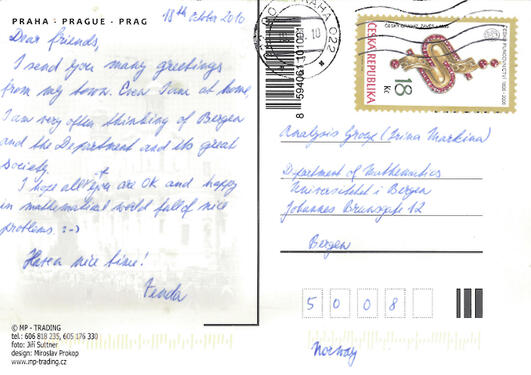 PRAHA · PRAGUE · PRAG
18th October 2010
Dear friends,
I send you many greetings
from my town. Even I am at home,
I am very often thinking of Bergen
and the Department and its great
society.
I hope all of you are OK and happy
in mathematical world full of nice
problems. :-)
Have a nice time!
© MP - TRADING
tel.: 606 818 235, 605 176 330
foto: Jiří Sultner
design: Miroslav Prokop
www.mp-trading.cz
PRAHA 022
8 594061 101001
ČESKÁ REPUBLIKA
18 Kč
Analysis Group (Irina Markina)
Department of Mathematics
Universitetet i Bergen
Johannes Brunsgate 12
Bergen
5 0 0 8
Norway